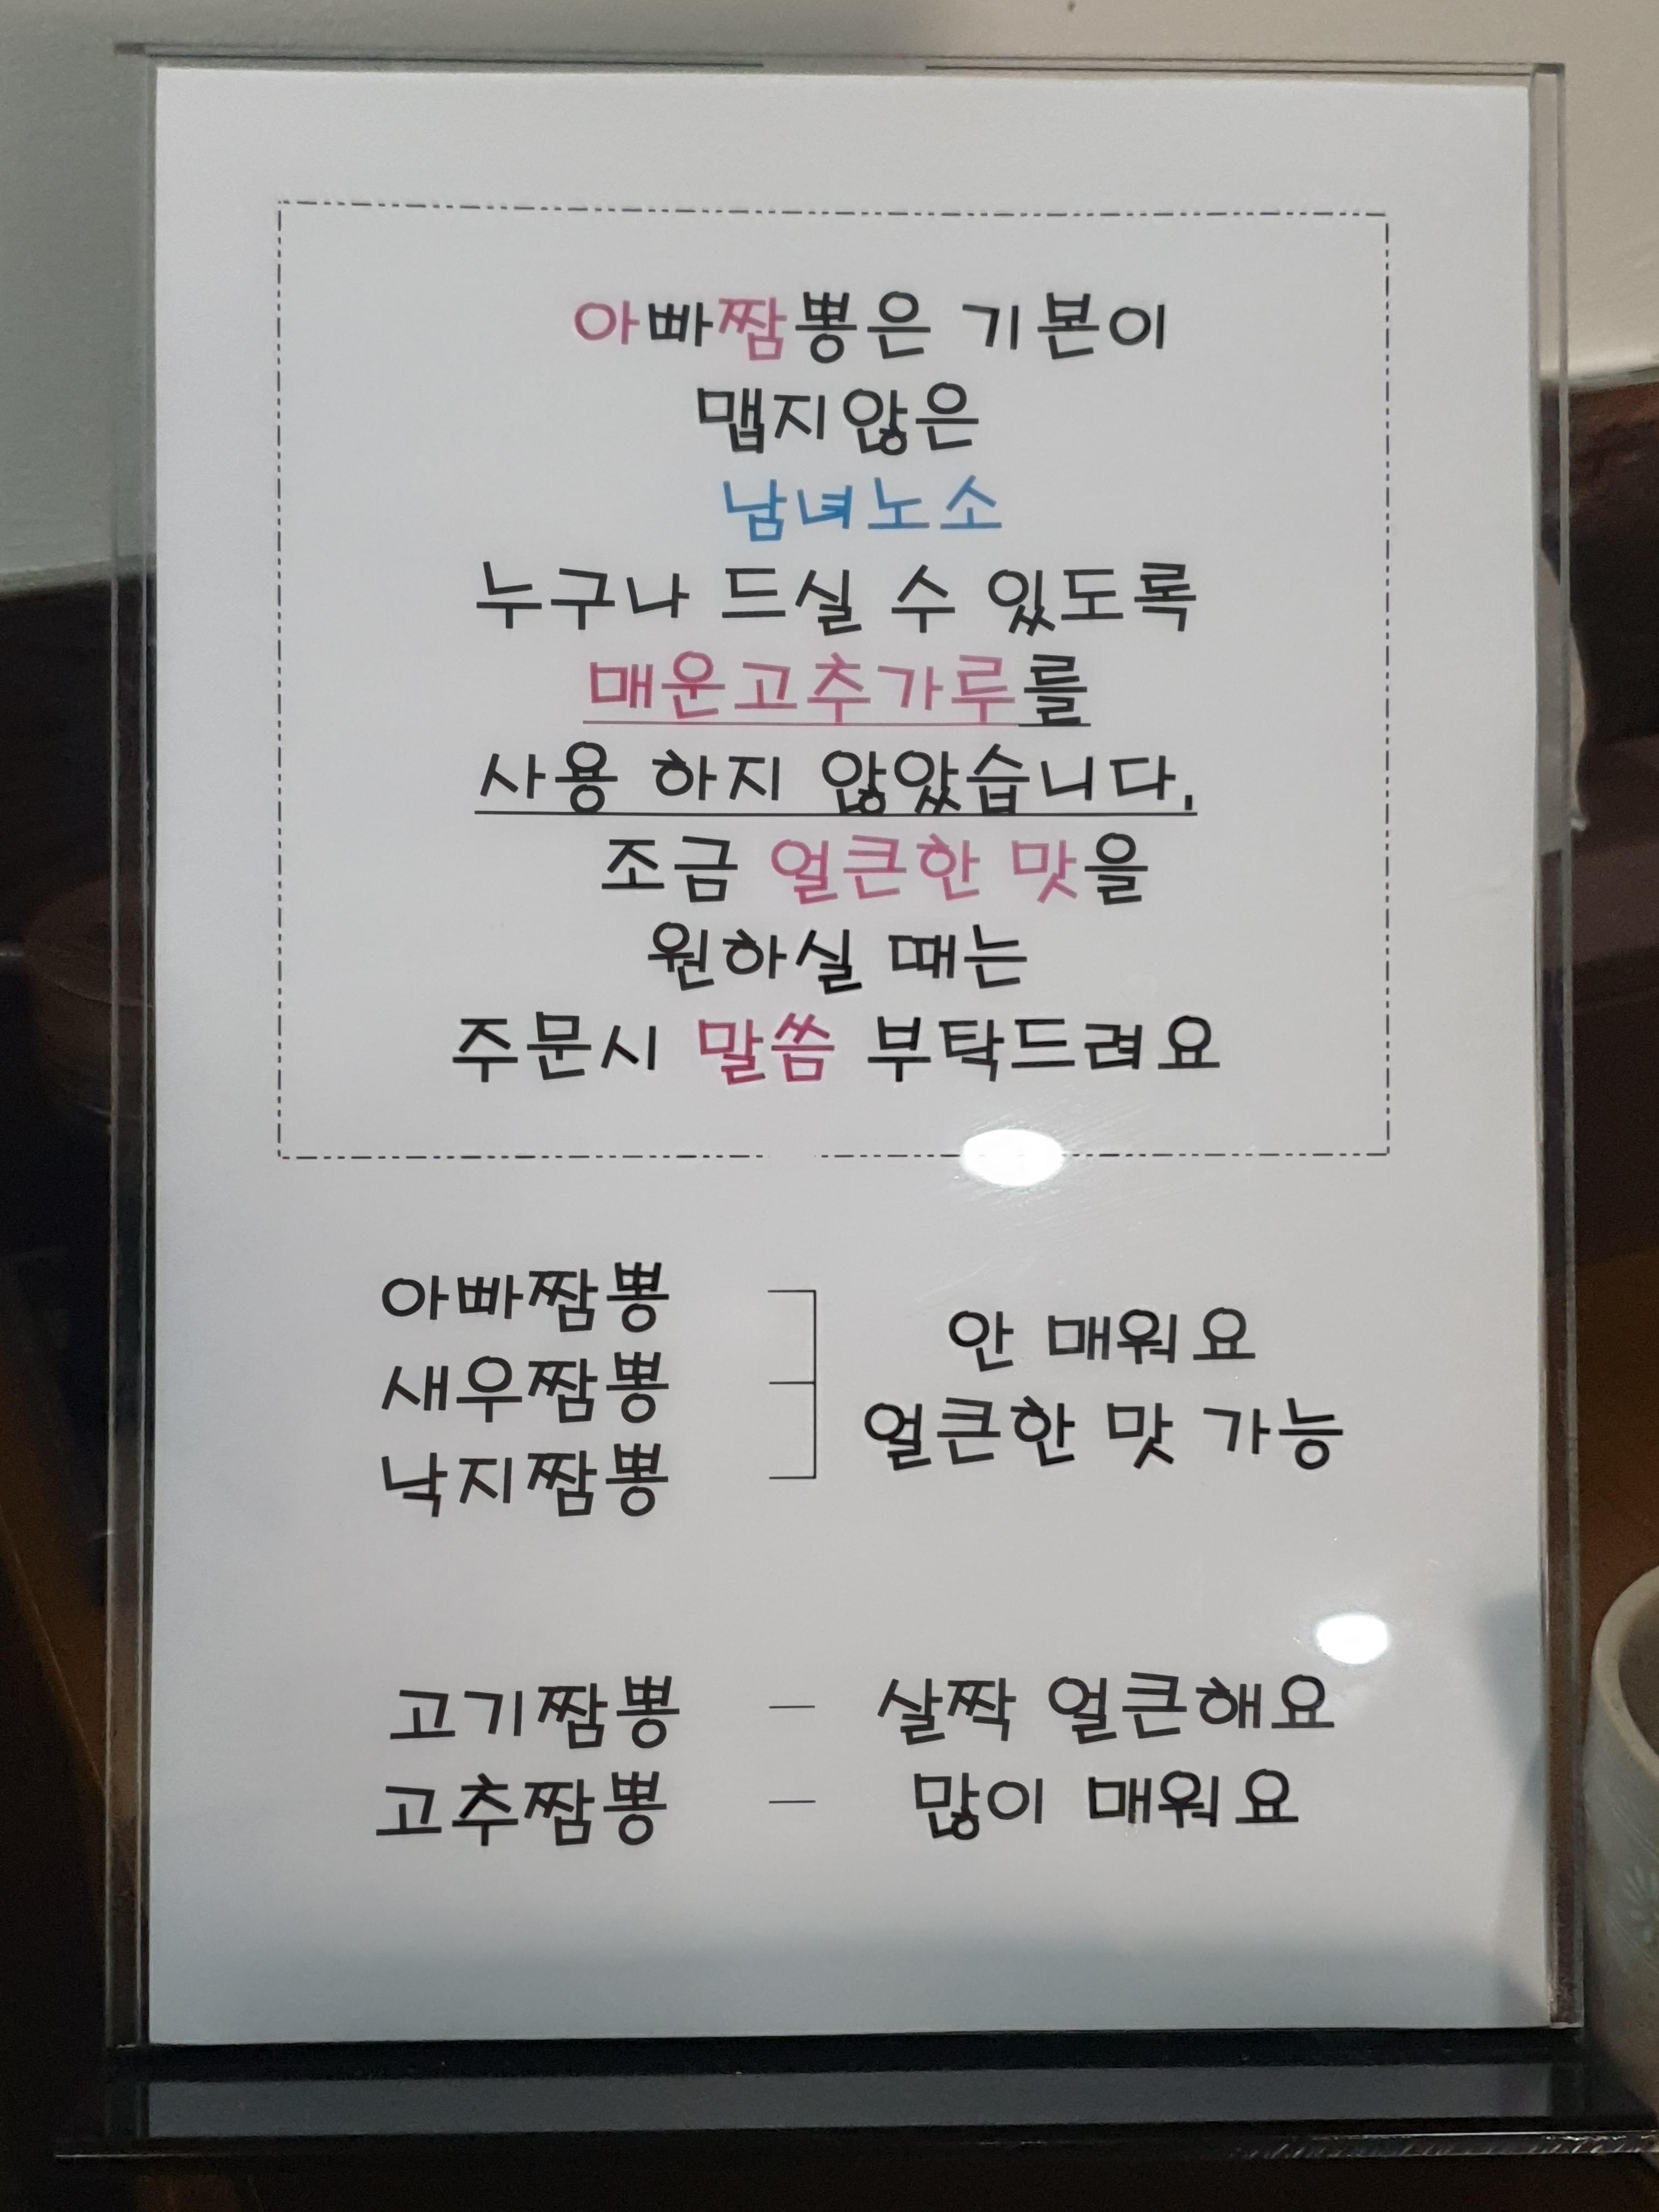 아빠짬뽕은 기본이
맵지않은
남녀노소
누구나 드실 수 있도록
매운고추가루를
사용 하지 않았습니다.
조금 얼큰한 맛을
원하실 때는
주문시 말씀 부탁드려요
아빠짬뽕
새우짬뽕
낙지짬뽕
안 매워요
얼큰한 맛 가능
고기짬뽕 - 살짝 얼큰해요
고추짬뽕 - 많이 매워요